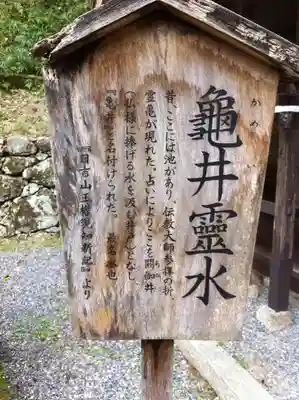 龜井靈水
かめ
昔、ここには池があり、伝教大師参拝の折、
霊亀が現れた。占いによりここを閼伽井
（仏様に捧げる水を汲む井戸）となし、
『亀井』と名付けられた。
『日吉山王権現知新記』より